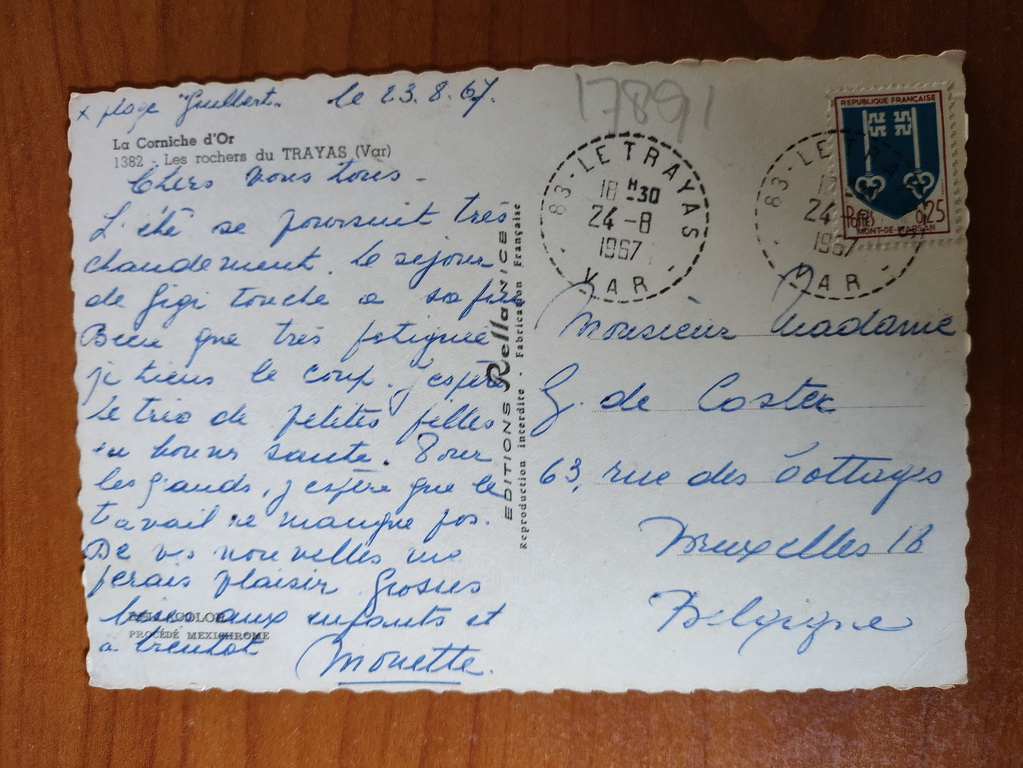 x plage "Guilbert" le 23.8.67.
La Corniche d'Or
1382 - Les rochers du TRAYAS (Var)
Chers vous tous -
L'été se poursuit très
chaudement. Le séjour
de Gigi touche a sa fin
Bien que très fatiguée
je tiens le coup. J'espère
le trio de petites filles
en bonne santé. Pour
les grands, j'espère que le
travail ne manque pas.
De vos nouvelles me
ferais plaisir. Grosses
bises aux enfants et
a bientot
Mouette.
RELLACOLOR
PROCÉDÉ MEXICHROME
EDITIONS Rella NICE
Reproduction interdite - Fabrication Française
17891
83 - LE TRAYAS
18 H 30
24 - 8
1967
VAR
83 - LE TRAYAS
24 - 8
1967
VAR
REPUBLIQUE FRANÇAISE
POSTES 0,25
MONT-DE-MARSAN
Monsieur Madame
G. de Coster
63, rue des Cottages
Bruxelles 18
Belgique